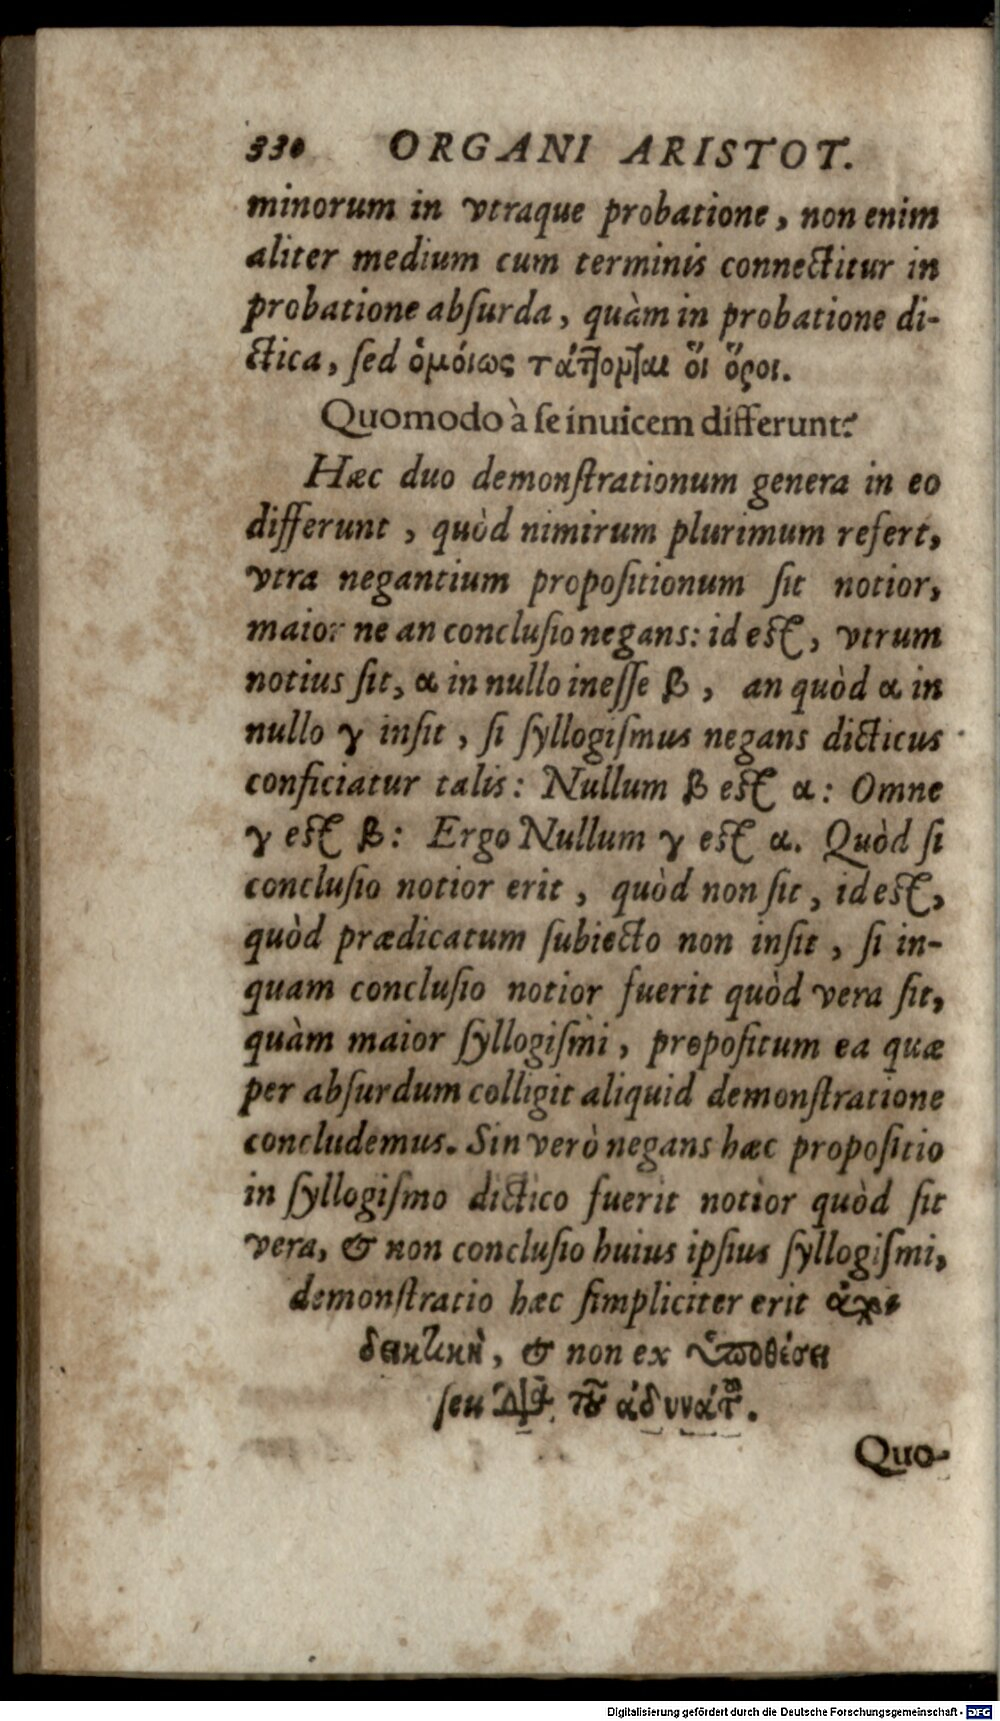 330 ORGANI ARISTOT.
minorum in vtraque probatione, non enim
aliter medium cum terminis connectitur in
probatione absurda, quàm in probatione di-
ctica, sed ὁμόιως τάττονται ὅι ὅροι.
Quomodo à se inuicem differunt?
Hæc duo demonstrationum genera in eo
differunt, quòd nimirum plurimum refert,
vtra negantium propositionum sit notior,
maior ne an conclusio negans: id est, vtrum
notius sit, α in nullo inesse β, an quòd α in
nullo γ insit, si syllogismus negans dicticus
conficiatur talis: Nullum β est α: Omne
γ est β: Ergo Nullum γ est α. Quòd si
conclusio notior erit, quòd non sit, id est,
quòd prædicatum subiecto non insit, si in-
quam conclusio notior fuerit quòd vera sit,
quàm maior syllogismi, propositum ea quæ
per absurdum colligit aliquid demonstratione
concludemus. Sin verò negans hæc propositio
in syllogismo dictico fuerit notior quòd sit
vera, & non conclusio huius ipsius syllogismi,
demonstratio hæc simpliciter erit
δεικτικὴ, & non ex ὑποθέσει
seu τοῦ ἀδυνάτου.
Quo-
Digitalisierung gefördert durch die Deutsche Forschungsgemeinschaft - DFG